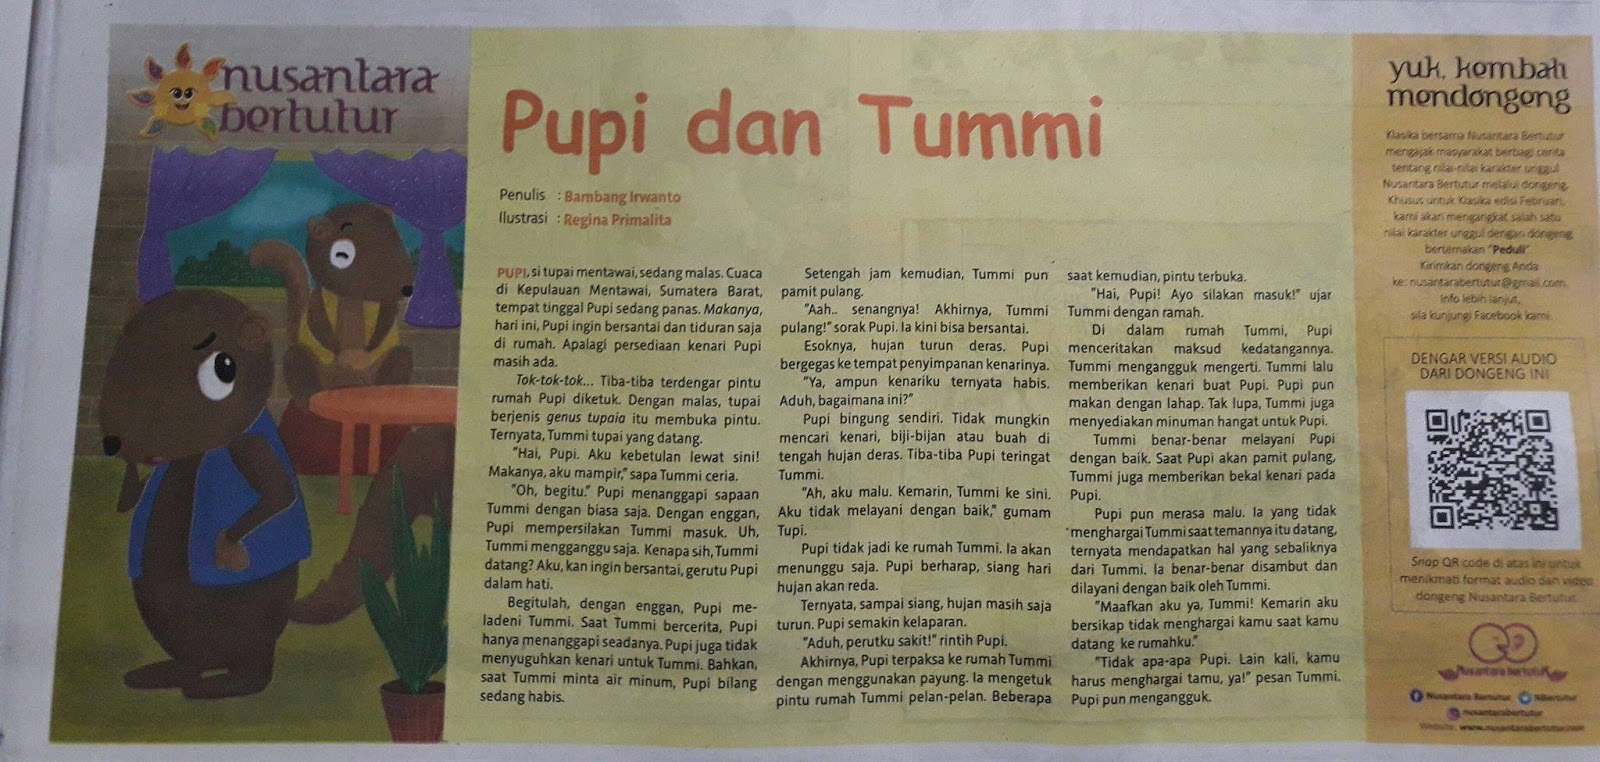 nusantara
bertutur
Pupi dan Tummi
Penulis : Bambang Irwanto
Ilustrasi : Regina Primalita
PUPI, si tupai mentawai, sedang malas. Cuaca
di Kepulauan Mentawai, Sumatera Barat,
tempat tinggal Pupi sedang panas. Makanya,
hari ini, Pupi ingin bersantai dan tiduran saja
di rumah. Apalagi persediaan kenari Pupi
masih ada.
Tok-tok-tok... Tiba-tiba terdengar pintu
rumah Pupi diketuk. Dengan malas, tupai
berjenis genus tupaia itu membuka pintu.
Ternyata, Tummi tupai yang datang.
"Hai, Pupi. Aku kebetulan lewat sini!
Makanya, aku mampir," sapa Tummi ceria.
"Oh, begitu." Pupi menanggapi sapaan
Tummi dengan biasa saja. Dengan enggan,
Pupi mempersilakan Tummi masuk. Uh,
Tummi mengganggu saja. Kenapa sih, Tummi
datang? Aku, kan ingin bersantai, gerutu Pupi
dalam hati.
Begitulah, dengan enggan, Pupi me-
ladeni Tummi. Saat Tummi bercerita, Pupi
hanya menanggapi seadanya. Pupi juga tidak
menyuguhkan kenari untuk Tummi. Bahkan,
saat Tummi minta air minum, Pupi bilang
sedang habis.
Setengah jam kemudian, Tummi pun
pamit pulang.
"Aah.. senangnya! Akhirnya, Tummi
pulang!" sorak Pupi. Ia kini bisa bersantai.
Esoknya, hujan turun deras. Pupi
bergegas ke tempat penyimpanan kenarinya.
"Ya, ampun kenariku ternyata habis.
Aduh, bagaimana ini?"
Pupi bingung sendiri. Tidak mungkin
mencari kenari, biji-bijan atau buah di
tengah hujan deras. Tiba-tiba Pupi teringat
Tummi.
"Ah, aku malu. Kemarin, Tummi ke sini.
Aku tidak melayani dengan baik," gumam
Tupi.
Pupi tidak jadi ke rumah Tummi. Ia akan
menunggu saja. Pupi berharap, siang hari
hujan akan reda.
Ternyata, sampai siang, hujan masih saja
turun. Pupi semakin kelaparan.
"Aduh, perutku sakit!" rintih Pupi.
Akhirnya, Pupi terpaksa ke rumah Tummi
dengan menggunakan payung. Ia mengetuk
pintu rumah Tummi pelan-pelan. Beberapa
saat kemudian, pintu terbuka.
"Hai, Pupi! Ayo silakan masuk!" ujar
Tummi dengan ramah.
Di dalam rumah Tummi, Pupi
menceritakan maksud kedatangannya.
Tummi mengangguk mengerti. Tummi lalu
memberikan kenari buat Pupi. Pupi pun
makan dengan lahap. Tak lupa, Tummi juga
menyediakan minuman hangat untuk Pupi.
Tummi benar-benar melayani Pupi
dengan baik. Saat Pupi akan pamit pulang,
Tummi juga memberikan bekal kenari pada
Pupi.
Pupi pun merasa malu. Ia yang tidak
menghargai Tummi saat temannya itu datang,
ternyata mendapatkan hal yang sebaliknya
dari Tummi. Ia benar-benar disambut dan
dilayani dengan baik oleh Tummi.
"Maafkan aku ya, Tummi! Kemarin aku
bersikap tidak menghargai kamu saat kamu
datang ke rumahku."
"Tidak apa-apa Pupi. Lain kali, kamu
harus menghargai tamu, ya!" pesan Tummi.
Pupi pun mengangguk.
yuk, kembali
mendongeng
Klasika bersama Nusantara Bertutur
mengajak masyarakat berbagi cerita
tentang nilai-nilai karakter unggul
Nusantara Bertutur melalui dongeng.
Khusus untuk Klasika edisi Februari,
kami akan mengangkat salah satu
nilai karakter unggul dengan dongeng
bertemakan "Peduli".
Kirimkan dongeng Anda
ke: nusantarabertutur@gmail.com.
Info lebih lanjut,
sila kunjungi Facebook kami.
DENGAR VERSI AUDIO
DARI DONGENG INI
Snap QR code di atas ini untuk
menikmati format audio dan video
dongeng Nusantara Bertutur
Nusantara bertutur
Nusantara Bertutur NBertutur
nusantarabertutur
Website: www.nusantarabertutur.com